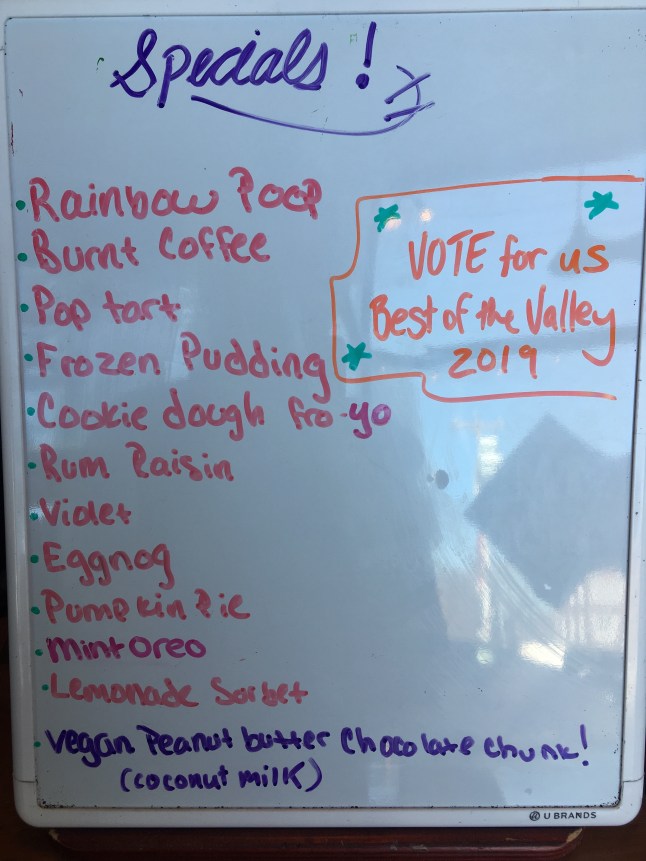 Specials!
• Rainbow Poop
• Burnt Coffee
• Pop tart
• Frozen Pudding
• Cookie dough fro-yo
• Rum Raisin
• Violet
• Eggnog
• Pumpkin Pie
• Mint Oreo
• Lemonade Sorbet
• Vegan Peanut butter Chocolate chunk!
(coconut milk)
VOTE for us
Best of the Valley
2019
U BRANDS